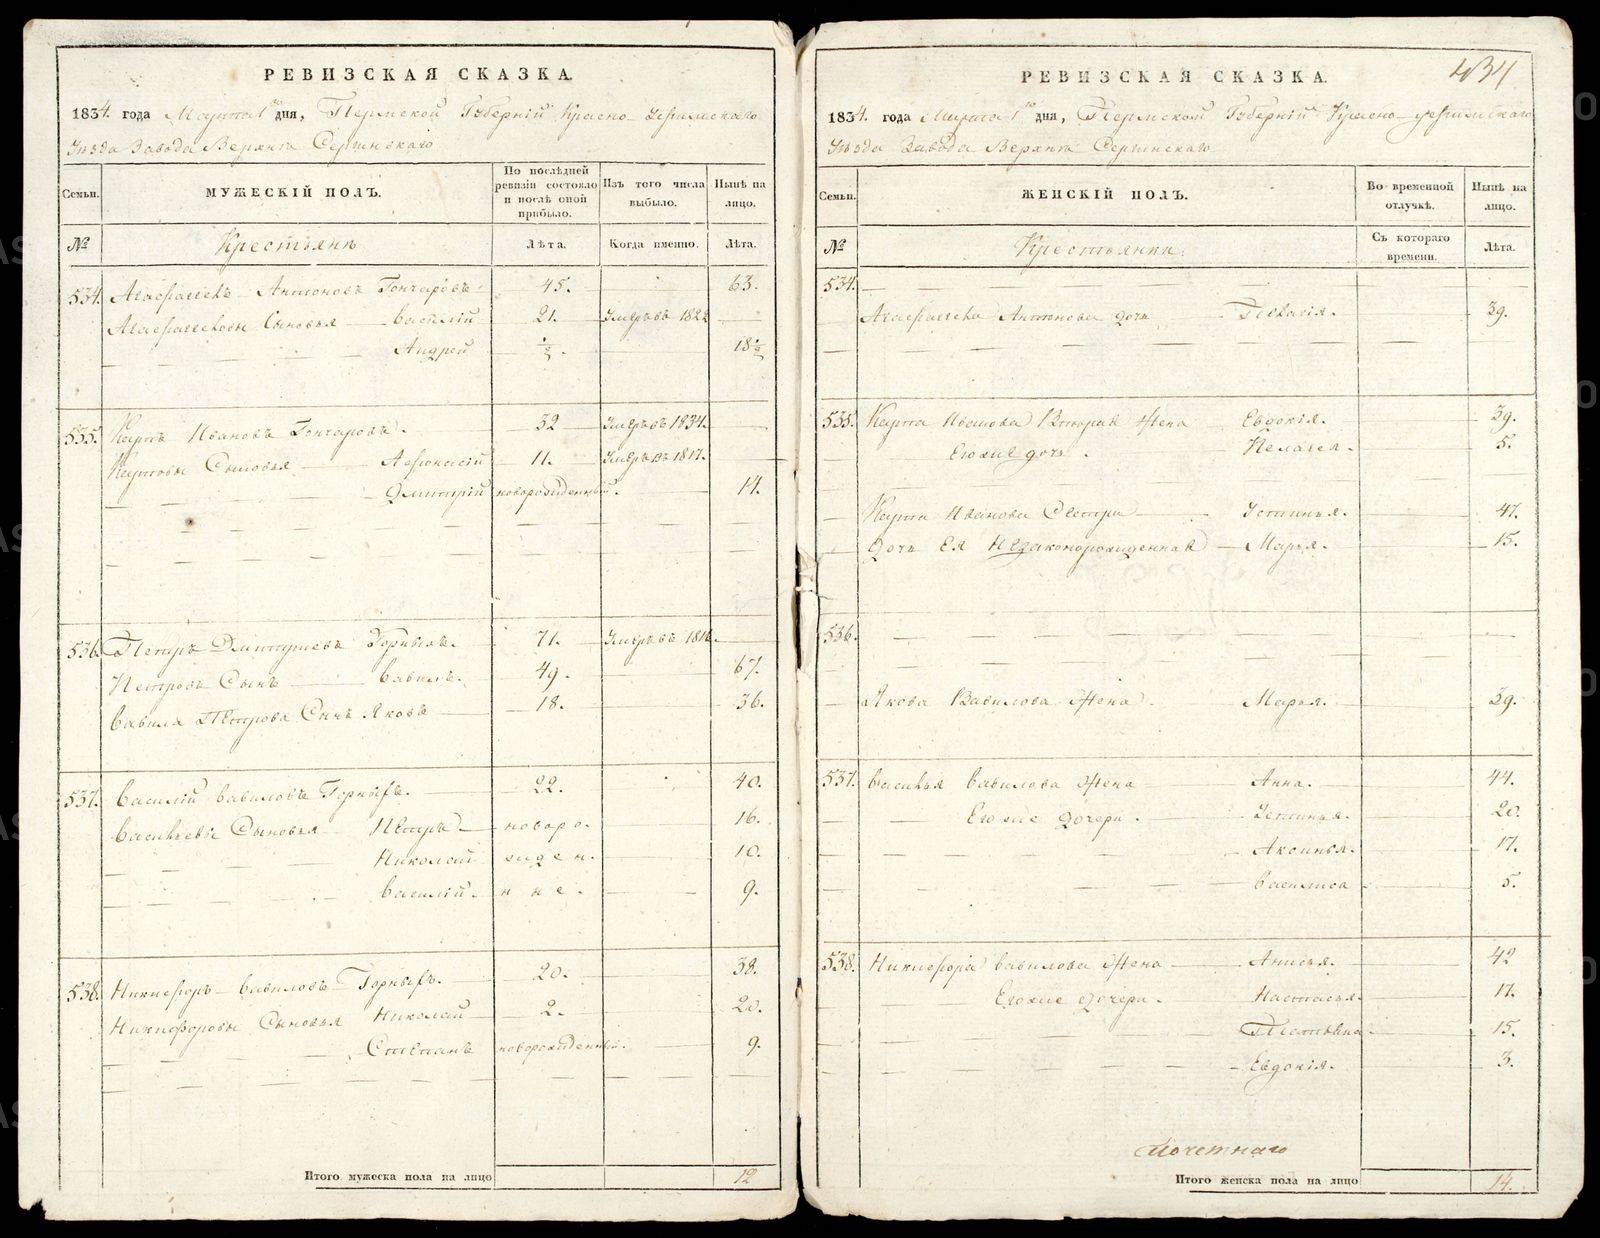 РЕВИЗСКАЯ СКАЗКА.
1834. года Марта 1го дня, Пермской Губерніи Красно-Уфимскаго
Уѣзда Завода Верхнга Сергинскаго
Семьи.
МУЖЕСКІЙ ПОЛЪ.
По послѣдней ревизіи состояло и послѣ оной прибыло.
Изъ того числа выбыло.
Нынѣ на лицо.
№
Крестьянѣ
Лѣта.
Когда именно.
Лѣта.
534. Агафангелъ Антоновъ Гончаровъ 45. 63.
Агафангеловы Сыновья Василій 21. Умеръ въ 1822
Андрей ½. 18½
535. Карпъ Ивановъ Гончаровъ. 32 Умеръ въ 1834.
Карповы Сыновья Афонасій 11. Умеръ въ 1817.
Дмитрій новорожденный. 14.
536. Петръ Дмитріевъ Горныхъ. 71. Умеръ въ 1816.
Петровъ Сынъ Вавилъ. 49. 67.
Вавила Петрова Сынъ Яковъ 18. 36.
537. Василій Вавиловъ Горныхъ. 22. 40.
Васильевы Сыновья Петръ новоро. 16.
Николай жден. 10.
Василій. нне. 9.
538. Никифоръ Вавиловъ Горныхъ. 20. 38.
Никифоровы Сыновья Николай 2. 20.
Степанъ новорожденный. 9.
Итого мужеска пола на лицо 12
434
РЕВИЗСКАЯ СКАЗКА.
1834. года Марта 1го дня, Пермской Губерніи Красно-Уфимскаго
Уѣзда Завода Верхнга Сергинскаго
Семьи.
ЖЕНСКІЙ ПОЛЪ.
Во временной отлучкѣ.
Нынѣ на лицо.
№
Крестьянки.
Съ котораго времени.
Лѣта.
534.
Агафангела Антонова дочь 39.
535. Карпа Иванова Вторая Жена Евдокія. 39.
Егоже дочь. Пелагея. 5.
Карпа Иванова Сестра Устинья. 47.
Дочь Ея Незаконорожденная Марья. 15.
536.
Якова Вавилова Жена Марья. 39.
537. Василья Вавилова Жена Анна. 44.
Егоже дочери. Устинья. 20.
Аксинья. 17.
Василиса 5.
538. Никифора Вавилова Жена Анисья. 42
Егоже Дочери. Настасья. 17.
15.
Евдокія. 3.
Почетнаго
Итого женска пола на лицо 14.